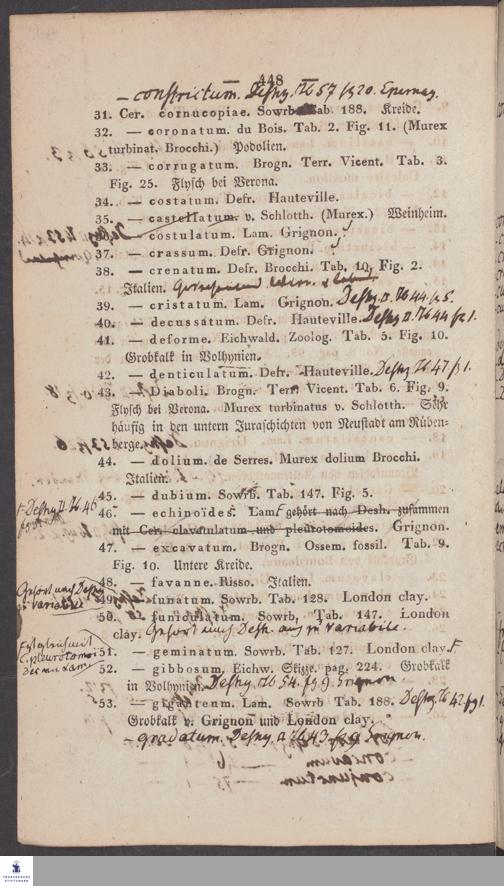 448
— constrictum. Deshy. Tb 57 fg 20. Epernay.
31. Cer. cornucopiae. Sowrb. Tab. 188. Kreide.
32. — coronatum. du Bois. Tab. 2. Fig. 11. (Murex
turbinat. Brocchi.) Podolien.
33. — corrugatum. Brogn. Terr. Vicent. Tab. 3.
Fig. 25. Flysch bei Verona.
34. — costatum. Defr. Hauteville.
35. — castellatum. v. Schlotth. (Murex.) Weinheim.
36. — costulatum. Lam. Grignon.
37. — crassum. Defr. Grignon.
38. — crenatum. Defr. Brocchi. Tab. 10. Fig. 2.
Italien.
39. — cristatum. Lam. Grignon. Deshy II. Tb 44 fg 5.
40. — decussatum. Defr. Hauteville. Deshy II. Tb 44 fg 1.
41. — deforme. Eichwald. Zoolog. Tab. 5. Fig. 10.
Grobkalk in Volhynien.
42. — denticulatum. Defr. Hauteville. Deshy Tb 47 fg 1.
43. — Diaboli. Brogn. Terr. Vicent. Tab. 6. Fig. 9.
Flysch bei Verona. Murex turbinatus v. Schlotth. Sehr
häufig in den untern Juraschichten von Neustadt am Rüben-
berge.
44. — dolium. de Serres. Murex dolium Brocchi.
Italien.
45. — dubium. Sowrb. Tab. 147. Fig. 5.
F. Deshy II. Tb 46
46. — echinoides. Lam. gehört nach Desh. zusammen
mit Cer. clavatulatum und pleurotomoides. Grignon.
47. — excavatum. Brogn. Ossem. fossil. Tab. 9.
Fig. 10. Untere Kreide.
48. — favanne. Risso. Italien.
Gehört nach Deshy
zu variabile
49. — funatum. Sowrb. Tab. 128. London clay.
50. — funiculatum. Sowrb. Tab. 147. London
clay. Gehört nach Desh. auch zu variabile.
51. — geminatum. Sowrb. Tab. 127. London clay. F
F ist gleich mit
C. pleurotomoi
des von Lam
52. — gibbosum. Eichw. Skizze. pag. 224. Grobkalk
in Volhynien. Deshy. Tb 54. fg 9 Grignon
53. — giganteum. Lam. Sowrb Tab. 188. Deshy. Tb 42 fg 1.
Grobkalk v. Grignon und London clay.
— gradatum. Deshy. II Tb 43 fg 9 Grignon.
TRANSYLVANICA STIFTUNGEN